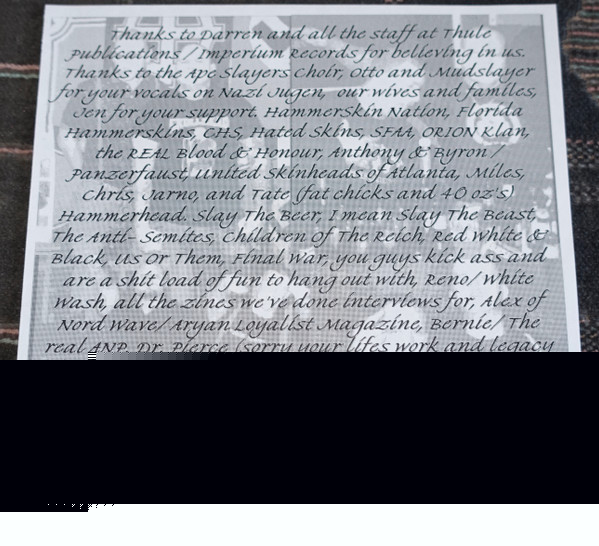 Thanks to Darren and all the staff at Thule
Publications / Imperium Records for believing in us.
Thanks to the Ape Slayers Choir, Otto and Mudslayer
for your vocals on Nazi Jugen, our wives and families,
Jen for your support. HammerSkin Nation, Florida
Hammerskins, CHS, Hated Skins, SFAA, ORION Klan,
the REAL Blood & Honour, Anthony & Byron /
Panzerfaust, United Skinheads of Atlanta, Miles,
Chris, Jarno, and Tate (fat chicks and 40 oz's)
Hammerhead. Slay The Beer, I mean Slay The Beast,
The Anti-Semites, Children Of The Reich, Red White &
Black, Us Or Them, Final War, you guys kick ass and
are a shit load of fun to hang out with, Reno/ White
Wash, all the zines we've done interviews for, Alex of
Nord Wave/ Aryan Loyalist Magazine, Bernie/ The
real ANP. Dr. Pierce (sorry your lifes work and legacy